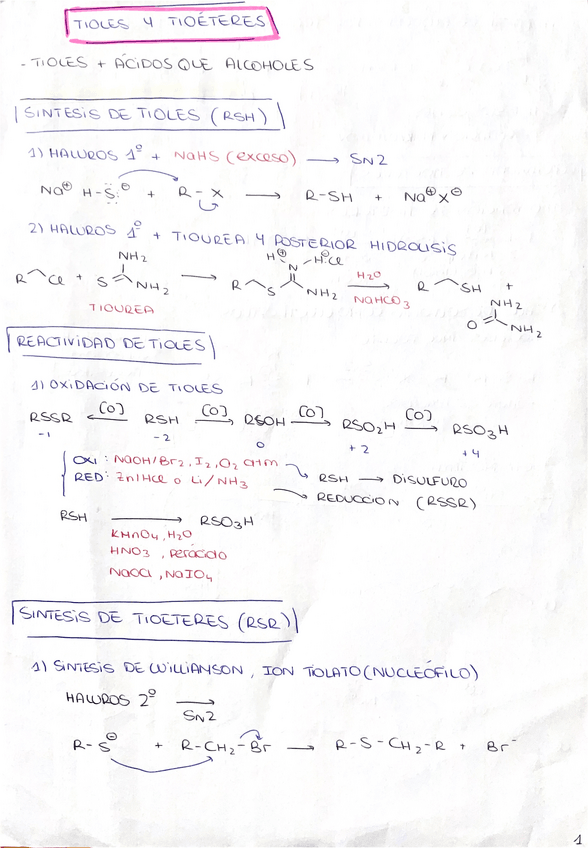 TIOLES Y TIOÉTERES
- TIOLES + ÁCIDOS QUE ALCOHOLES
SINTESIS DE TIOLES (RSH)
1) HALUROS 1º + NaHS (exceso) → SN2
Na⊕ H-S:⊖ + R-X → R-SH + Na⊕X⊖
2) HALUROS 1º + TIOUREA Y POSTERIOR HIDROLISIS
NH2 H⊕ H⊕Cl⊖
R Cl + S NH2 → R S N NH2 H2O NaHCO3 R SH +
TIOUREA
NH2
O NH2
REACTIVIDAD DE TIOLES
1) OXIDACIÓN DE TIOLES
RSSR ←[O] RSH [O]→ RSOH [O]→ RSO2H [O]→ RSO3H
-1 -2 0 +2 +4
OXI: NaOH/Br2, I2, O2 atm
RED: Zn/HCl o Li/NH3
RSH → DISULFURO
REDUCCION (RSSR)
RSH → RSO3H
KMnO4, H2O
HNO3, perácido
NaOCl, NaIO4
SINTESIS DE TIOETERES (RSR)
1) SINTESIS DE WILLIAMSON, ION TIOLATO (NUCLEÓFILO)
HALUROS 2º →
SN2
R-S⊖ + R-CH2-Br → R-S-CH2-R + Br-
1